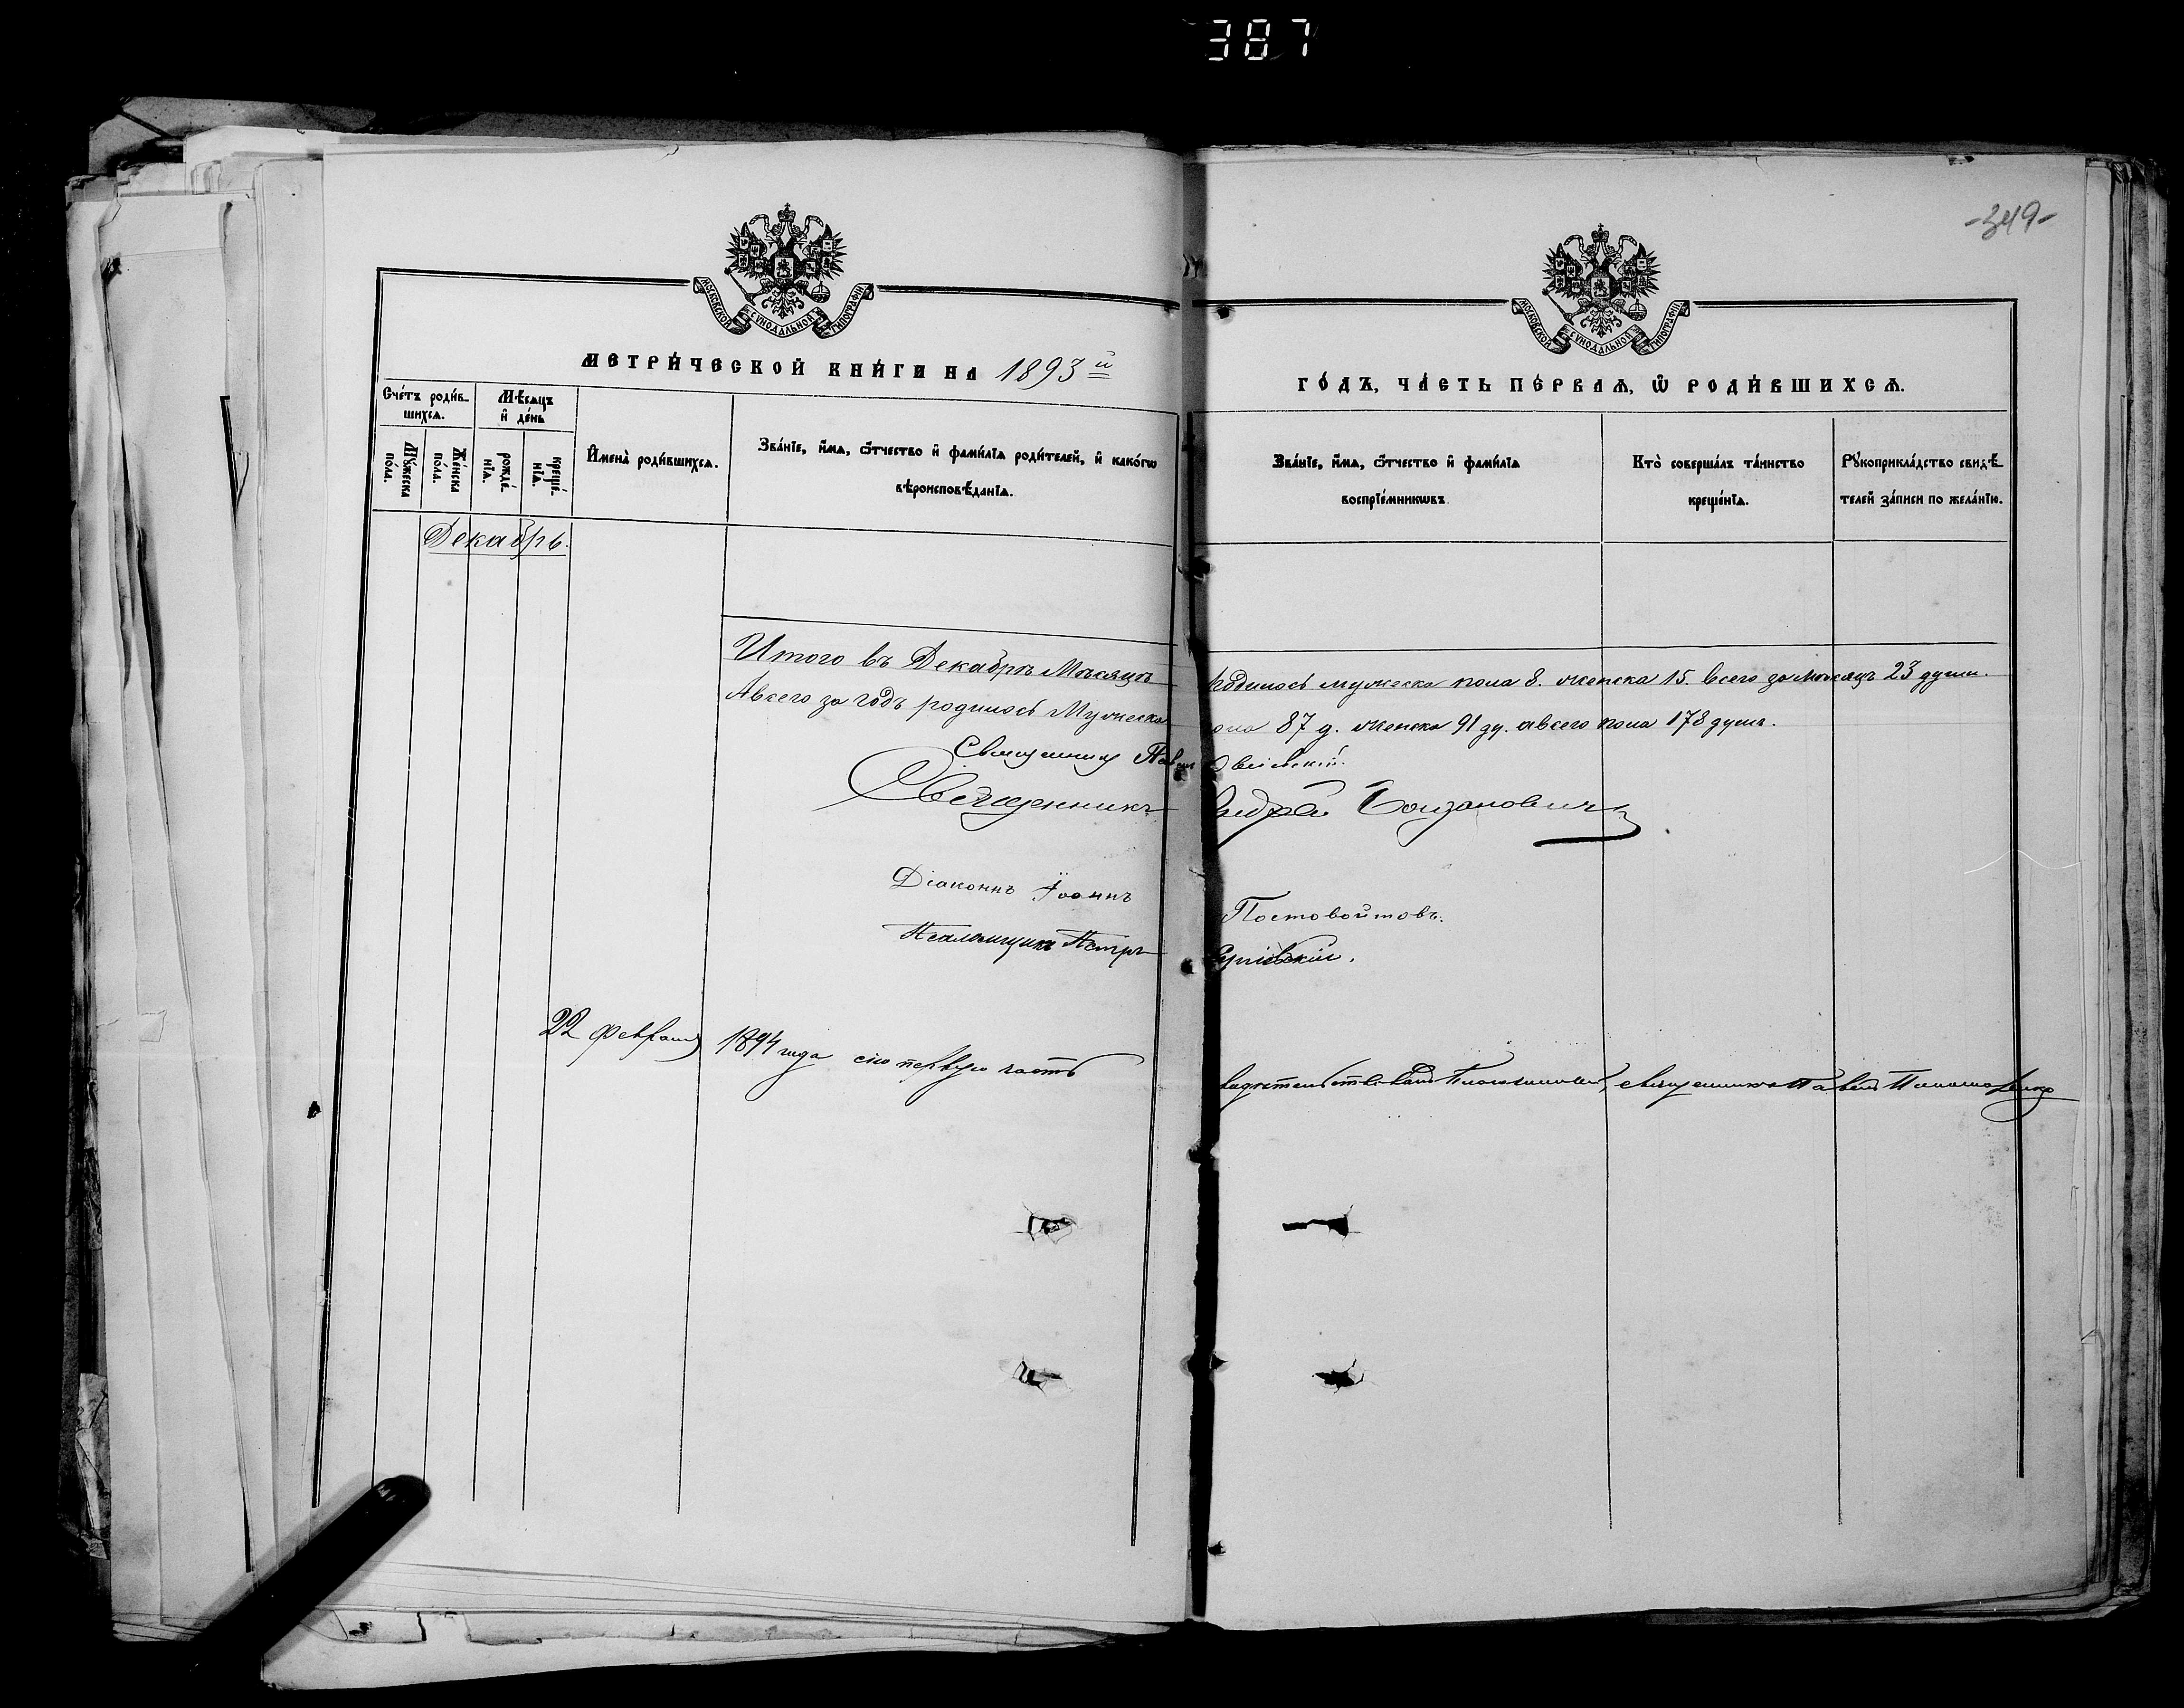 387
-349-
МОСКОВСКОЙ СУНОДАЛЬНОЙ ТИПОГРАФІИ
МОСКОВСКОЙ СУНОДАЛЬНОЙ ТИПОГРАФІИ
МЕТРИ́ЧЕСКОЙ КНИ́ГИ НА 1893й
ГО́ДЪ, ЧА́СТЬ ПЕ́РВАѦ, Ѡ҆ РОДИ́ВШИХСѦ.
Сче́тъ роди́в-
шихсѧ.
Мѣ́сѧцъ
и҆ де́нь
Мꙋ́жеска
по́ла.
Же́нска
по́ла.
рожде́-
нїѧ.
креще́-
нїѧ.
И҆мена̀ роди́вшихсѧ.
Зва́нїе, и҆́мѧ, ѻ҆́тчество и҆ фами́лїѧ роди́телей, и҆ како́гѡ
вѣроисповѣ́данїѧ.
Зва́нїе, и҆́мѧ, ѻ҆́тчество и҆ фами́лїѧ
воспрїе́мникѡвъ.
Кто̀ соверша́лъ та́инство
креще́нїѧ.
Рꙋкоприкла́дство свидѣ́-
телей за́писи по жела́нїю.
Декабрь.
Итого въ Декабрѣ Мѣсяцѣ родилось мужеска пола 8. женска 15. всего за мѣсяцъ 23 души.
Авсего за годъ родилось Мужеска пола 87 д. женска 91 ду. авсего пола 178 душъ.
Священникъ Павелъ
Священникъ Андрей
Діаконъ Іоаннъ Постовойтовъ.
Псаломщикъ Петръ
22 февраля 1894 года сію первую часть священникъ Павелъ